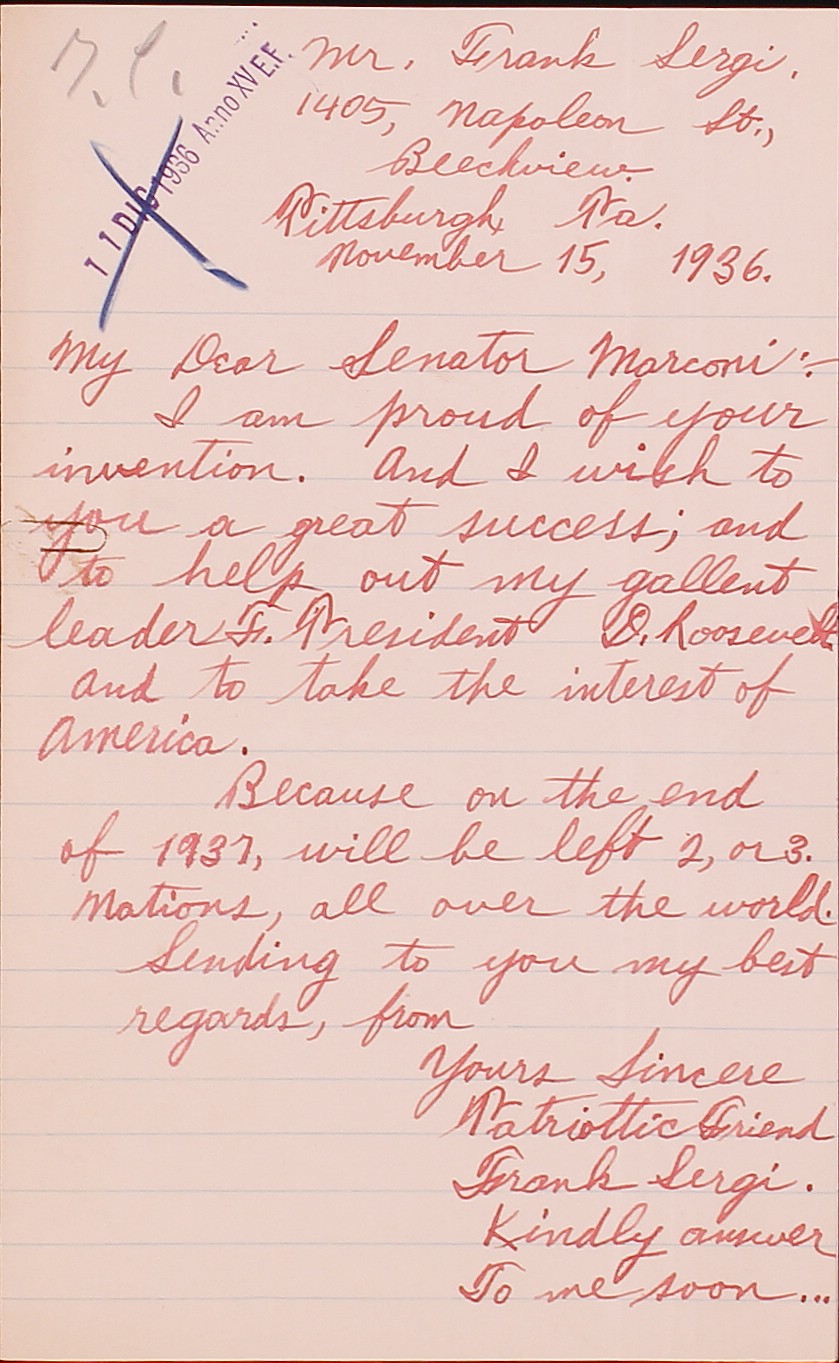 Mr. Frank Sergi.
1405, Napoleon St.,
Beechview.
Pittsburgh, Pa.
November 15, 1936.
11 DIC 1936 Anno XV E.F.
My Dear Senator Marconi:-
I am proud of your
invention. And I wish to
you a great success; and
to help out my gallent
leader F. President D. Roosevelt
and to take the interest of
America.
Because on the end
of 1937, will be left 2, or 3.
Nations, all over the world.
Sending to you my best
regards, from
Yours Sincere
Patriottic Friend
Frank Sergi.
Kindly answer
To me soon...